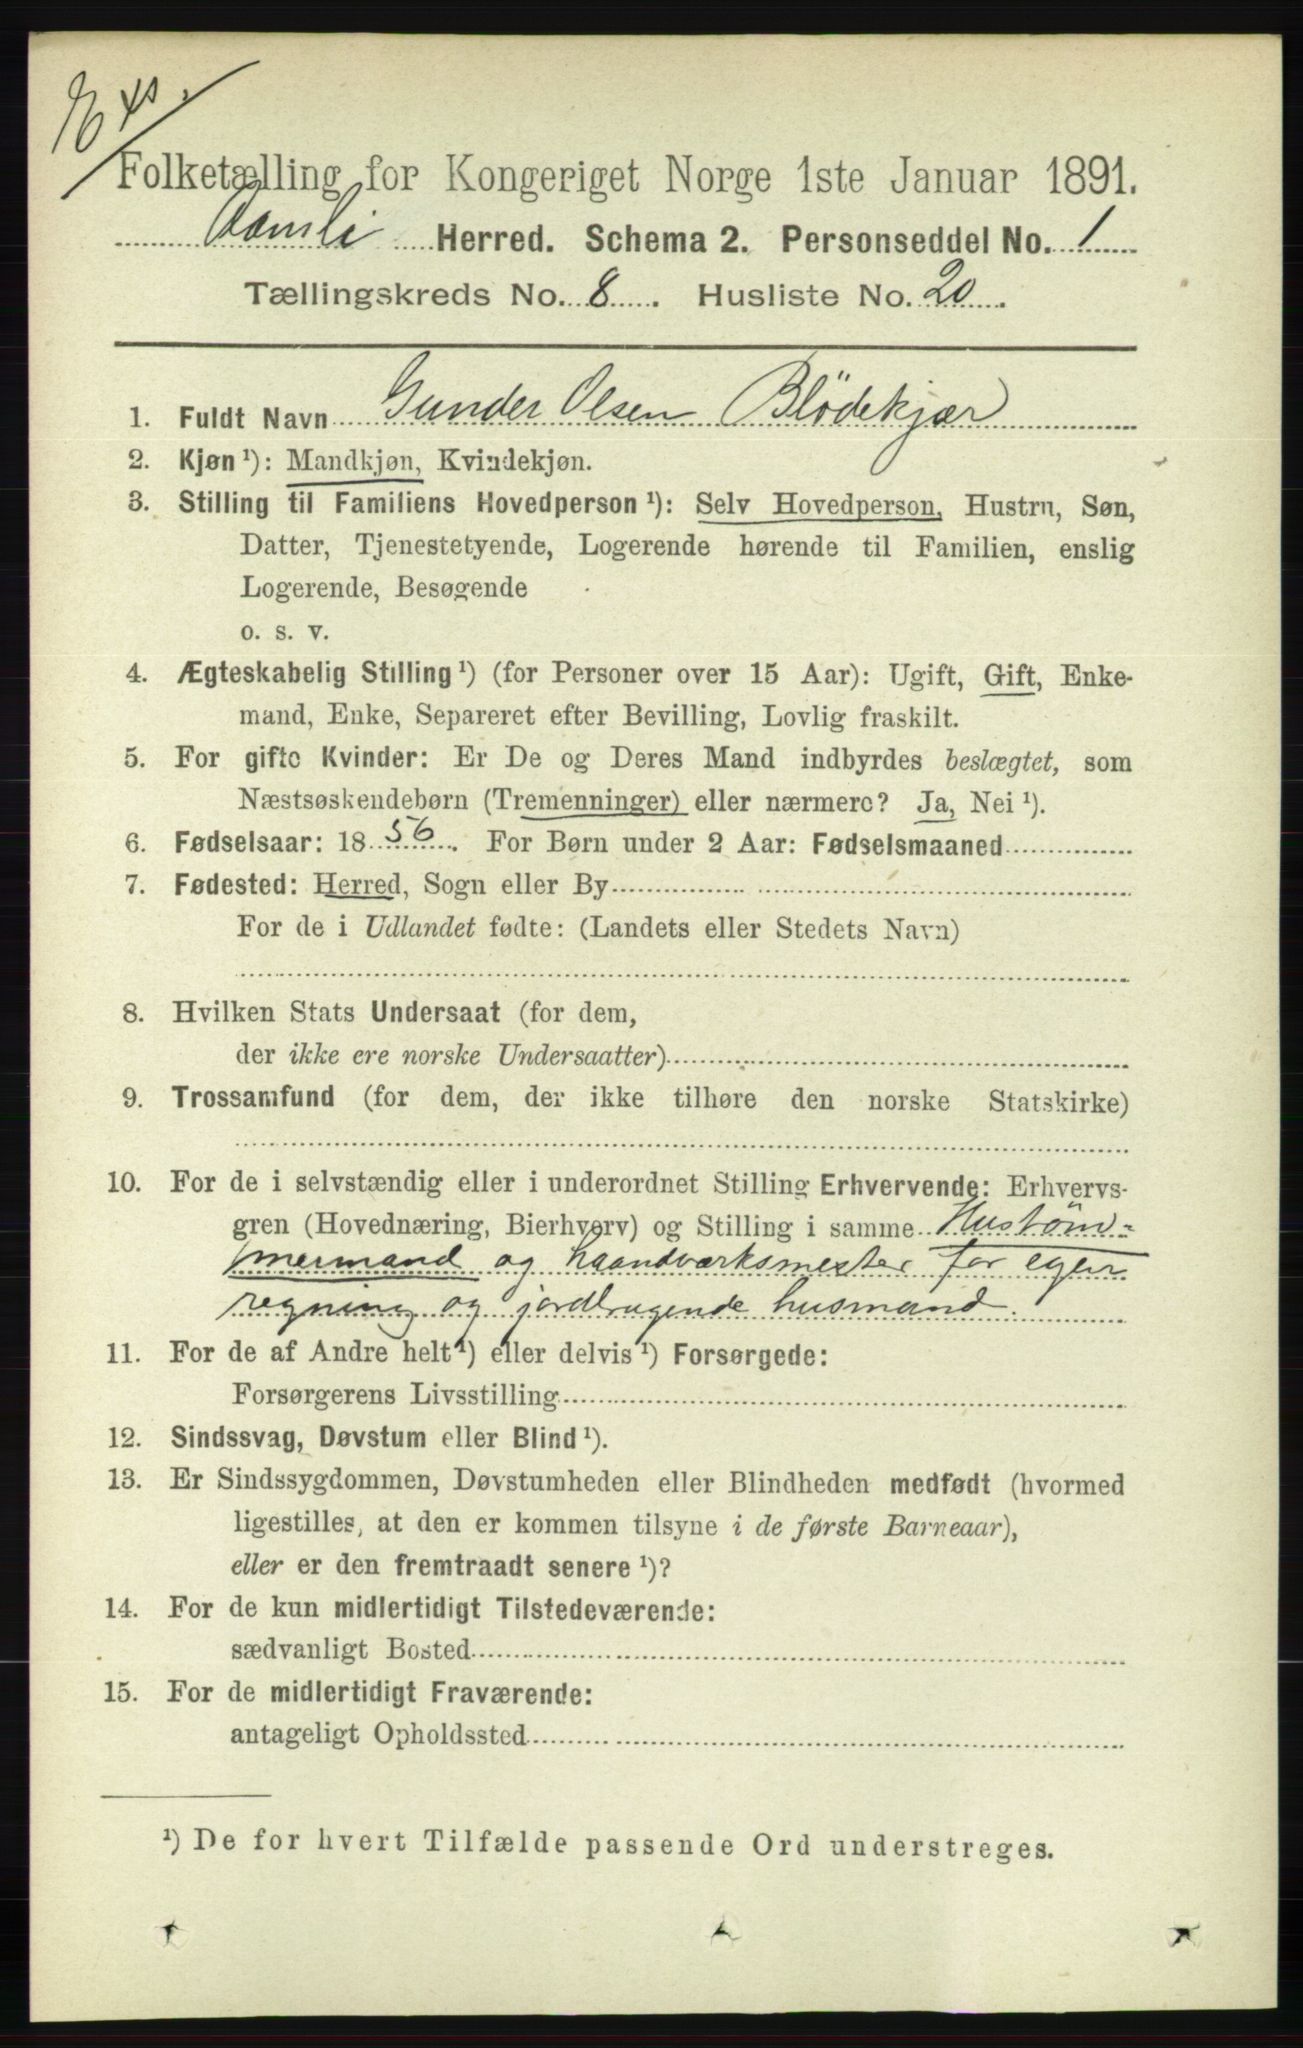 Folketælling for Kongeriget Norge 1ste Januar 1891.
Aamli Herred. Schema 2. Personseddel No. 1
Tællingskreds No. 8. Husliste No. 20.
1. Fuldt Navn Gunder Olsen Blödekjær
2. Kjøn ¹): Mandkjøn, Kvindekjøn.
3. Stilling til Familiens Hovedperson ¹): Selv Hovedperson, Hustru, Søn,
Datter, Tjenestetyende, Logerende hørende til Familien, enslig
Logerende, Besøgende
o. s. v.
4. Ægteskabelig Stilling ¹) (for Personer over 15 Aar): Ugift, Gift, Enke-
mand, Enke, Separeret efter Bevilling, Lovlig fraskilt.
5. For gifte Kvinder: Er De og Deres Mand indbyrdes beslægtet, som
Næstsøskendebørn (Tremenninger) eller nærmere? Ja, Nei ¹).
6. Fødselsaar: 1856. For Børn under 2 Aar: Fødselsmaaned
7. Fødested: Herred, Sogn eller By
For de i Udlandet fødte: (Landets eller Stedets Navn)
8. Hvilken Stats Undersaat (for dem,
der ikke ere norske Undersaatter)
9. Trossamfund (for dem, der ikke tilhøre den norske Statskirke)
10. For de i selvstændig eller i underordnet Stilling Erhvervende: Erhvervs-
gren (Hovednæring, Bierhverv) og Stilling i samme Hustöm-
mermand og haandværksmester for egen
regning og jordbrugende husmand.
11. For de af Andre helt ¹) eller delvis ¹) Forsørgede:
Forsørgerens Livsstilling
12. Sindssvag, Døvstum eller Blind ¹).
13. Er Sindssygdommen, Døvstumheden eller Blindheden medfødt (hvormed
ligestilles, at den er kommen tilsyne i de første Barneaar),
eller er den fremtraadt senere ¹)?
14. For de kun midlertidigt Tilstedeværende:
sædvanligt Bosted
15. For de midlertidigt Fraværende:
antageligt Opholdssted
¹) De for hvert Tilfælde passende Ord understreges.